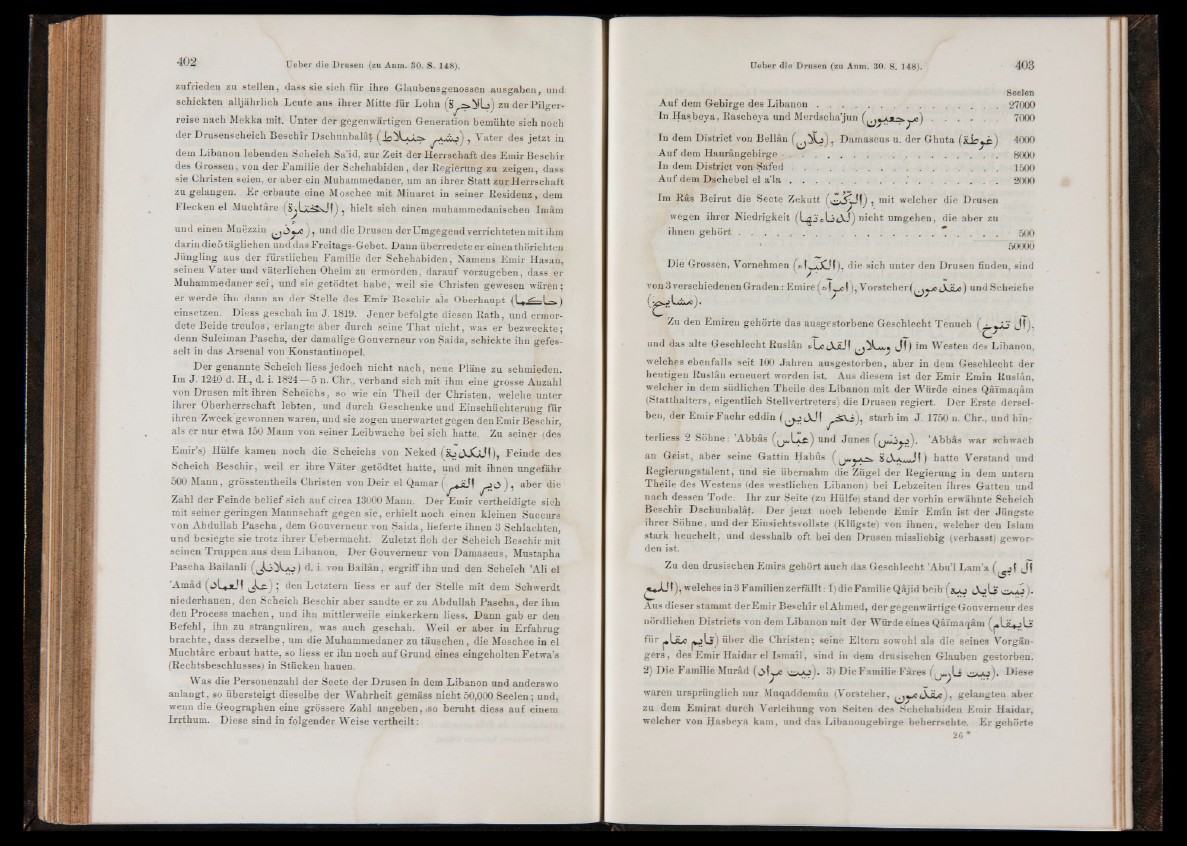 402 Ueber die Drusen (zu Anm. 30. S. 148).
zufrieden zu stellen, dass sie sich für ihre Glaubensgenossen ausgaben, und
schickten alljährlich Leute aus ihrer Mitte für Lohn (بالاجرة) zu der Pilger-
reise nach Mekka mit. Unter der gegenwärtigen Generation bemühte sich noch
der Drusenscheich Beschîr Dschunbalâṭ (بشير جنبلاط), Vater des jetzt in
dem Libanon lebenden Scheich Sa'îd, zur Zeit der Herrschaft des Emir Beschir
des Grossen, von der Familie der Schehabiden, der Regierung zu zeigen, dass
sie Christen seien, er aber ein Muhammedaner, um an ihrer Statt zur Herrschaft
zu gelangen. Er erbaute eine Moschee mit Minaret in seiner Residenz, dem
Flecken el Muchtâre (المختارة), hielt sich einen muhammedanischen Imâm
und einen Muëzzin (موذن), und die Drusen der Umgegend verrichteten mit ihm
darin die 5 täglichen und das Freitags-Gebet. Dann überredete er einen thörichten
Jüngling aus der fürstlichen Familie der Schehabiden, Namens Emir Hasan,
seinen Vater und väterlichen Oheim zu ermorden, darauf vorzugeben, dass er
Muhammedaner sei, und sie getödtet habe, weil sie Christen gewesen wären;
er werde ihn dann an der Stelle des Emir Beschir als Oberhaupt (حاكما)
einsetzen. Diess geschah im J. 1819. Jener befolgte diesen Rath, und ermor-
dete Beide treulos, erlangte aber durch seine That nicht, was er bezweckte;
denn Suleiman Pascha, der damalige Gouverneur von Ṣaida, schickte ihn gefes-
selt in das Arsenal von Konstantinopel.
Der genannte Scheich liess jedoch nicht nach, neue Pläne zu schmieden.
Im J. 1240 d. H., d. i. 1824—5 n. Chr., verband sich mit ihm eine grosse Anzahl
von Drusen mit ihren Scheichs, so wie ein Theil der Christen, welche unter
ihrer Oberherrschaft lebten, und durch Geschenke und Einschüchterung für
ihren Zweck gewonnen waren, und sie zogen unerwartet gegen den Emir Beschir,
als er nur etwa 150 Mann von seiner Leibwache bei sich hatte. Zu seiner (des
Emir's) Hülfe kamen noch die Scheichs von Neked (النكدية), Feinde des
Scheich Beschir, weil er ihre Väter getödtet hatte, und mit ihnen ungefähr
500 Mann, grösstentheils Christen von Deir el Qamar (دير القمر), aber die
Zahl der Feinde belief sich auf circa 13000 Mann. Der Emir vertheidigte sich
mit seiner geringen Mannschaft gegen sie, erhielt noch einen kleinen Succurs
von Abdullah Pascha, dem Gouverneur von Saida, lieferte ihnen 3 Schlachten,
und besiegte sie trotz ihrer Uebermacht. Zuletzt floh der Scheich Beschir mit
seinen Truppen aus dem Libanon. Der Gouverneur von Damascus, Mustapha
Pascha Bailanli (بيلانلى) d. i. von Bailân, ergriff ihn und den Scheich 'Ali el
'Amâd (على العماد); den Letztern liess er auf der Stelle mit dem Schwerdt
niederhauen, den Scheich Beschir aber sandte er zu Abdullah Pascha, der ihm
den Process machen, und ihn mittlerweile einkerkern liess. Dann gab er den
Befehl, ihn zu stranguliren, was auch geschah. Weil er aber in Erfahrug
brachte, dass derselbe, um die Muhammedaner zu täuschen, die Moschee in el
Muchtâre erbaut hatte, so liess er ihn noch auf Grund eines eingeholten Fetwa's
(Rechtsbeschlusses) in Stücken hauen.
Was die Personenzahl der Secte der Drusen in dem Libanon und anderswo
anlangt, so übersteigt dieselbe der Wahrheit gemäss nicht 50,000 Seelen; und,
wenn die Geographen eine grössere Zahl angeben, so beruht diess auf einem
Irrthum. Diese sind in folgender Weise vertheilt:
Ueber die Drusen (zu Anm. 30. S. 148). 403
Seelen
Auf dem Gebirge des Libanon . . . . . . . . . . . . . 27000
In Hasbeya, Rascheya und Merdscha'jun (مرجعيون) . . . . . . 7000
In dem District von Bellân (بلان), Damascus u. der Ghuta (غوطة) 4000
Auf dem Haurângebirge . . . . . . . . . . . . . . 8000
In dem District von Safed . . . . . . . . . . . . . 1500
Auf dem Dschebel el a'la . . . . . . . . . . . . . . 2000
Im Râs Beirut die Secte Zekutt (الزكت), mit welcher die Drusen
wegen ihrer Niedrigkeit (لدناءتها) nicht umgehen, die aber zu
ihnen gehört . . . . . . . . . . . . . . . . . . 500
50000
Die Grossen, Vornehmen (الكبراء), die sich unter den Drusen finden, sind
von 3 verschiedenen Graden: Emire (امراء), Vorsteher (مقدمون) und Scheiche
(مشايخ).
Zu den Emiren gehörte das ausgestorbene Geschlecht Tenuch (آل تنوخ),
und das alte Geschlecht Ruslân آل رسلان القدماء) im Westen des Libanon,
welches ebenfalls seit 100 Jahren ausgestorben, aber in dem Geschlecht der
heutigen Ruslân erneuert worden ist. Aus diesem ist der Emir Emîn Ruslân,
welcher in dem südlichen Theile des Libanon mit der Würde eines Qâïmaqâm
(Statthalters, eigentlich Stellvertreters) die Drusen regiert. Der Erste dersel-
ben, der Emir Fachr eddin (فخر الدين), starb im J. 1750 n. Chr., und hin-
terliess 2 Söhne: 'Abbâs (عباس) und Junes (يونس). 'Abbâs war schwach
an Geist, aber seine Gattin Habûs (السيدة حبوس) hatte Verstand und
Regierungstalent, und sie übernahm die Zügel der Regierung in dem untern
Theile des Westens (des westlichen Libanon) bei Lebzeiten ihres Gatten und
nach dessen Tode. Ihr zur Seite (zu Hülfe) stand der vorhin erwähnte Scheich
Beschir Dschunbalâṭ. Der jetzt noch lebende Emir Emîn ist der Jüngste
ihrer Söhne, und der Einsichtsvollste (Klügste) von ihnen, welcher den Islam
stark heuchelt, und desshalb oft bei den Drusen missliebig (verhasst) gewor-
den ist.
Zu den drusischen Emirs gehört auch das Geschlecht 'Abu'l Lam'a (آل ابى
اللمع), welches in 3 Familien zerfällt: 1) die Familie Qâjid beih (بيت قايد بيه).
Aus dieser stammt der Emir Beschîr el Ahmed, der gegenwärtige Gouverneur des
nördlichen Districts von dem Libanon mit der Würde eines Qâïmaqâm (قايمقام
für قايم مقام) über die Christen; seine Eltern sowohl als die seines Vorgän-
gers, des Emir Haidar el Ismaîl, sind in dem drusischen Glauben gestorben.
2) Die Familie Murâd (بيت مراد). 3) Die Familie Fâres (بيت فارس). Diese
waren ursprünglich nur Muqaddemûn (Vorsteher, مقدمون), gelangten aber
zu dem Emirat durch Verleihung von Seiten des Schehabiden Emir Haidar,
welcher von Ḥasbeya kam, und das Libanongebirge beherrschte. Er gehörte
26 *